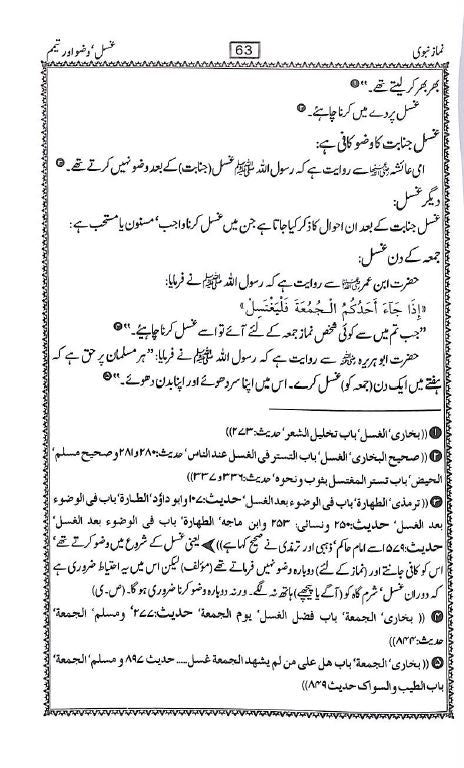 نماز نبوی 63 غسل، وضو اور تیمم
بھر بھر کر لیتے تھے۔“ ❶
غسل پردے میں کرنا چاہئے۔ ❷
غسل جنابت کا وضو کافی ہے:
امی عائشہ رضی اللہ عنہا سے روایت ہے کہ رسول اللہ ﷺ غسل (جنابت) کے بعد وضو نہیں کرتے تھے۔ ❸
دیگر غسل:
غسل جنابت کے بعد ان احوال کا ذکر کیا جاتا ہے جن میں غسل کرنا واجب، مسنون یا مستحب ہے:
جمعہ کے دن غسل:
حضرت ابن عمر رضی اللہ عنہما سے روایت ہے کہ رسول اللہ ﷺ نے فرمایا:
«إِذَا جَاءَ أَحَدُكُمُ الْجُمُعَةَ فَلْيَغْتَسِلْ»
”جب تم میں سے کوئی شخص نماز جمعہ کے لئے آئے تو اسے غسل کرنا چاہیئے۔“ ❹
حضرت ابو ہریرہ رضی اللہ عنہ سے روایت ہے کہ رسول اللہ ﷺ نے فرمایا: ”ہر مسلمان پر حق ہے کہ
ہفتے میں ایک دن (جمعہ کو) غسل کرے۔ اس میں اپنا سر دھوئے اور اپنا بدن دھوئے۔“ ❺
❶ ((بخاری، الغسل، باب تخلیل الشعر، حدیث:۲۷۳))
❷ ((صحیح البخاری، الغسل، باب التستر فی الغسل عند الناس، حدیث:۲۸۰، ۲۸۱ و صحیح مسلم،
الحیض، باب تستر المغتسل بثوب ونحوہ، حدیث:۳۳۶ و ۳۳۷))
❸ ((ترمذی، الطھارۃ، باب فی الوضوء بعد الغسل، حدیث:۱۰۷ و ابو داؤد، الطھارۃ، باب فی الوضوء
بعد الغسل، حدیث:۲۵۰، نسائی: ۲۵۳ وابن ماجہ، الطھارۃ، باب فی الوضوء بعد الغسل،
حدیث:۵۷۹ اسے امام حاکم، ذہبی اور ترمذی نے صحیح کہا ہے)) یعنی غسل کے شروع میں وضو کرتے تھے،
اس کو کافی جانتے اور (نماز کے لئے) دوبارہ وضو نہیں فرماتے تھے (مؤلف) لیکن اس میں یہ احتیاط ضروری ہے
کہ دوران غسل، شرم گاہ کو (آگے یا پیچھے) ہاتھ نہ لگے۔ ورنہ دوبارہ وضو کرنا ضروری ہو گا۔ (ص۔ی)
❹ ((بخاری، الجمعۃ، باب فضل الغسل، یوم الجمعۃ، حدیث:۸۷۷، ومسلم، الجمعۃ،
حدیث:۸۴۴))
❺ ((بخاری، الجمعۃ، باب ھل علی من لم یشھد الجمعۃ غسل..... حدیث ۸۹۷ و مسلم، الجمعۃ،
باب الطیب والسواک حدیث ۸۴۹))